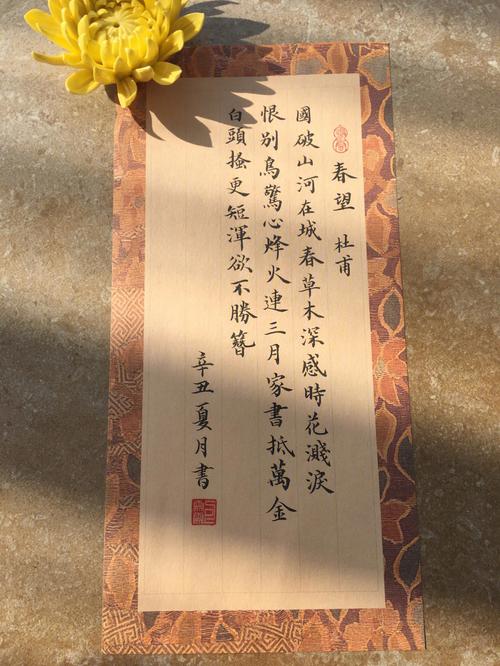 春望 杜甫
國破山河在城春草木深感時花濺淚
恨別鳥驚心烽火連三月家書抵萬金
白頭搔更短渾欲不勝簪
辛丑夏月書